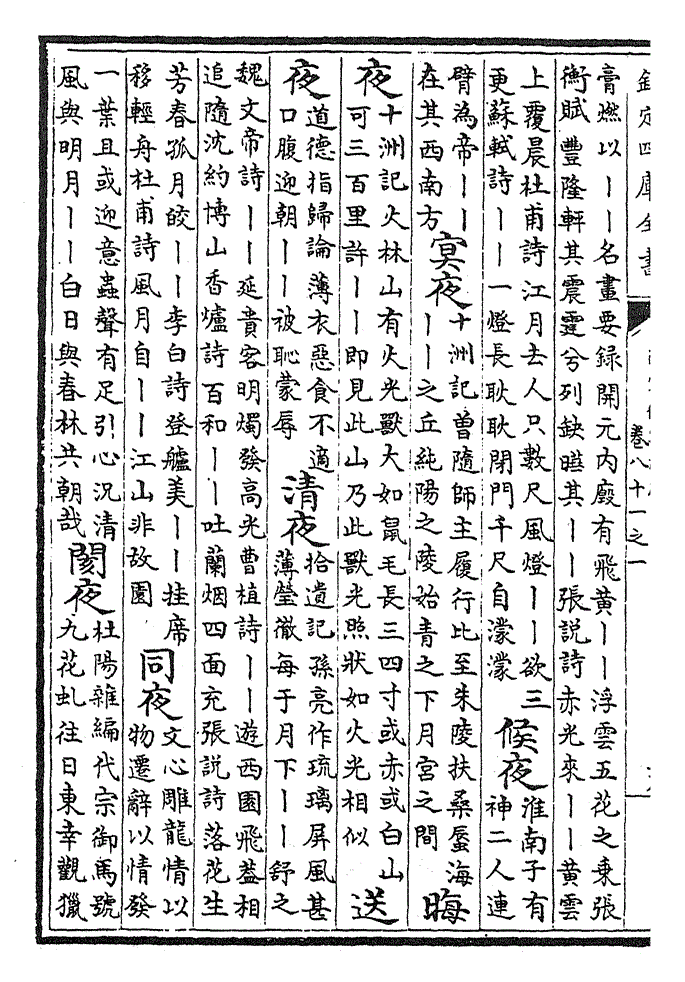 欽定四庫全書
卷八十一之一
膏燃以丨丨名畫要録開元内廏有飛黃丨丨浮雲五花之乗張
衡賦豐隆軒其震霆兮列缺曄其丨丨張説詩赤光來丨丨黃雲
上覆晨杜甫詩江月去人只數尺風燈丨丨欲三
更蘇軾詩丨丨一燈長耿耿閉門千尺自濛濛
候夜
淮南子有
神二人連
臂為帝丨丨
在其西南方
冥夜
十洲記曽隨師主履行比至朱陵扶桑蜃海
丨丨之丘純陽之陵始青之下月宮之間
晦
夜
十洲記火林山有火光獸大如鼠毛長三四寸或赤或白山
可三百里許丨丨即見此山乃此獸光照狀如火光相似
送
夜
道德指歸論薄衣惡食不適
口腹迎朝丨丨被恥蒙辱
清夜
拾遺記孫亮作琉璃屏風甚
薄瑩徹每于月下丨丨舒之
魏文帝詩丨丨延貴客明燭發高光曹植詩丨丨遊西園飛葢相
追隨沈約博山香爐詩百和丨丨吐蘭烟四面充張説詩落花生
芳春孤月皎丨丨李白詩登艫美丨丨挂席
移輕舟杜甫詩風月自丨丨江山非故園
同夜
文心雕龍情以
物遷辭以情發
一葉且或迎意蟲聲有足引心況清
風與明月丨丨白日與春林共朝哉
閡夜
杜陽雜編代宗御馬號
九花虬往日東幸觀獵